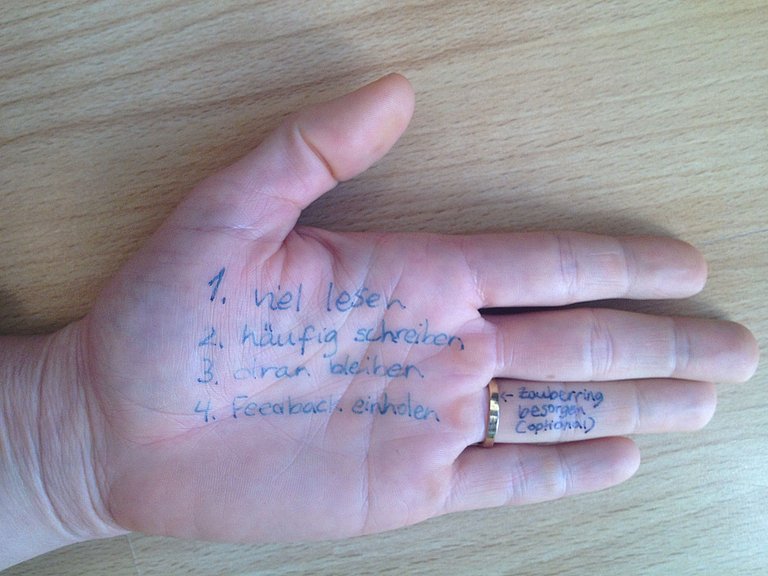 1. viel lesen
2. häufig schreiben
3. dran bleiben
4. Feedback einholen
← Zauberring
besorgen
(optional)